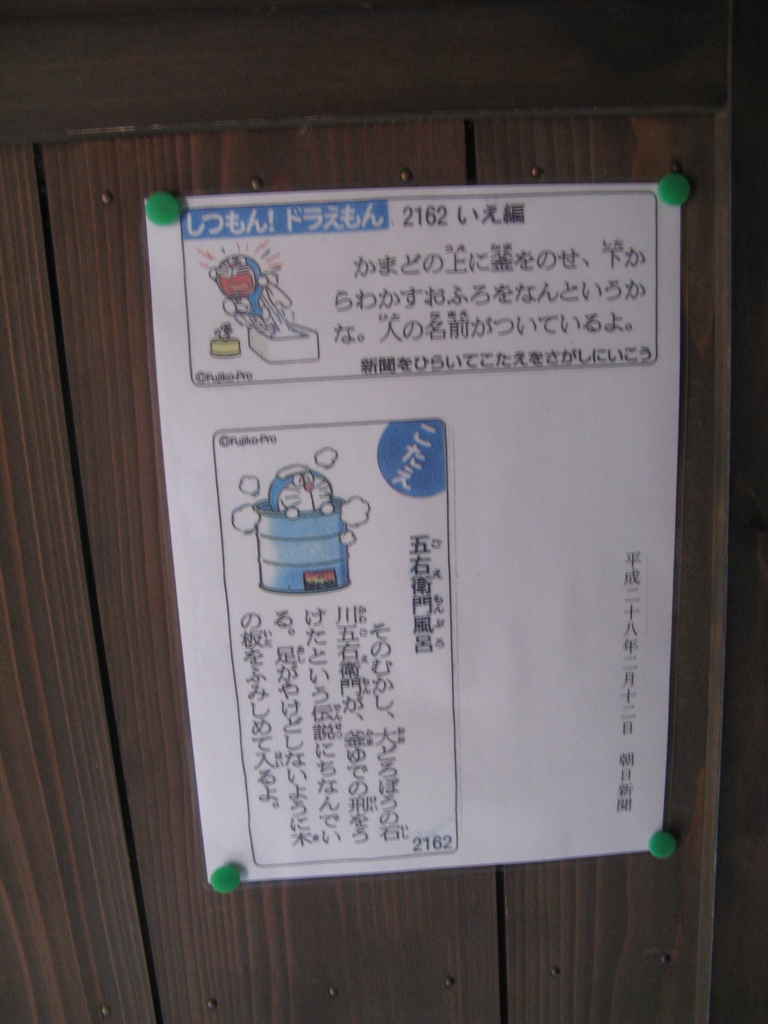 しつもん！ドラえもん 2162 いえ編
かまどの上に釜をのせ、下か
らわかすおふろをなんというか
な。人の名前がついているよ。
新聞をひらいてこたえをさがしにいこう
©Fujiko-Pro
こたえ
©Fujiko-Pro
五右衛門風呂
そのむかし、大どろぼうの石
川五右衛門が、釜ゆでの刑をう
けたという伝説にちなんでい
る。足がやけどしないように木
の板をふみしめて入るよ。
2162
平成二十八年二月十二日 朝日新聞